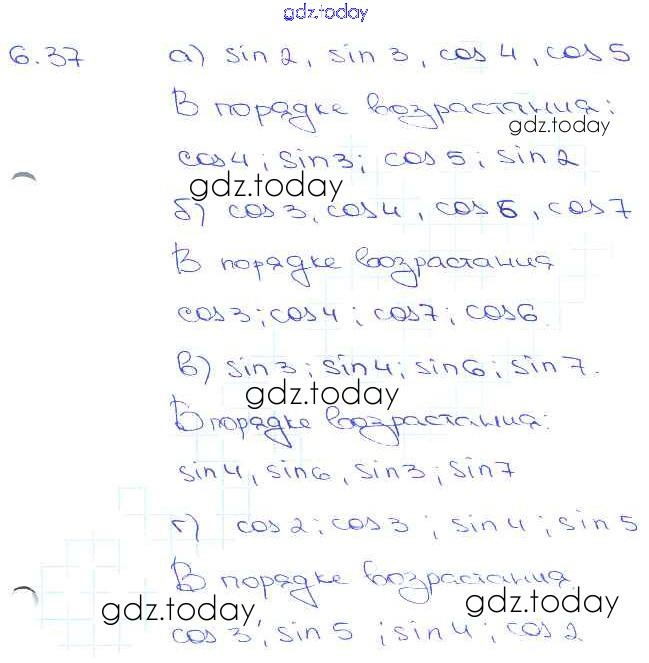 gdz.today
6.37 а) sin 2, sin 3, cos 4, cos 5
В порядке возрастания:
gdz.today
cos 4; sin 3; cos 5; sin 2
gdz.today
б) cos 3, cos 4, cos 6, cos 7
В порядке возрастания
cos 3; cos 4; cos 7; cos 6
в) sin 3; sin 4; sin 6; sin 7.
gdz.today
В порядке возрастания:
sin 4, sin 6, sin 3; sin 7
г) cos 2; cos 3; sin 4; sin 5
В порядке возрастания
gdz.today gdz.today
cos 3; sin 5; sin 4; cos 2